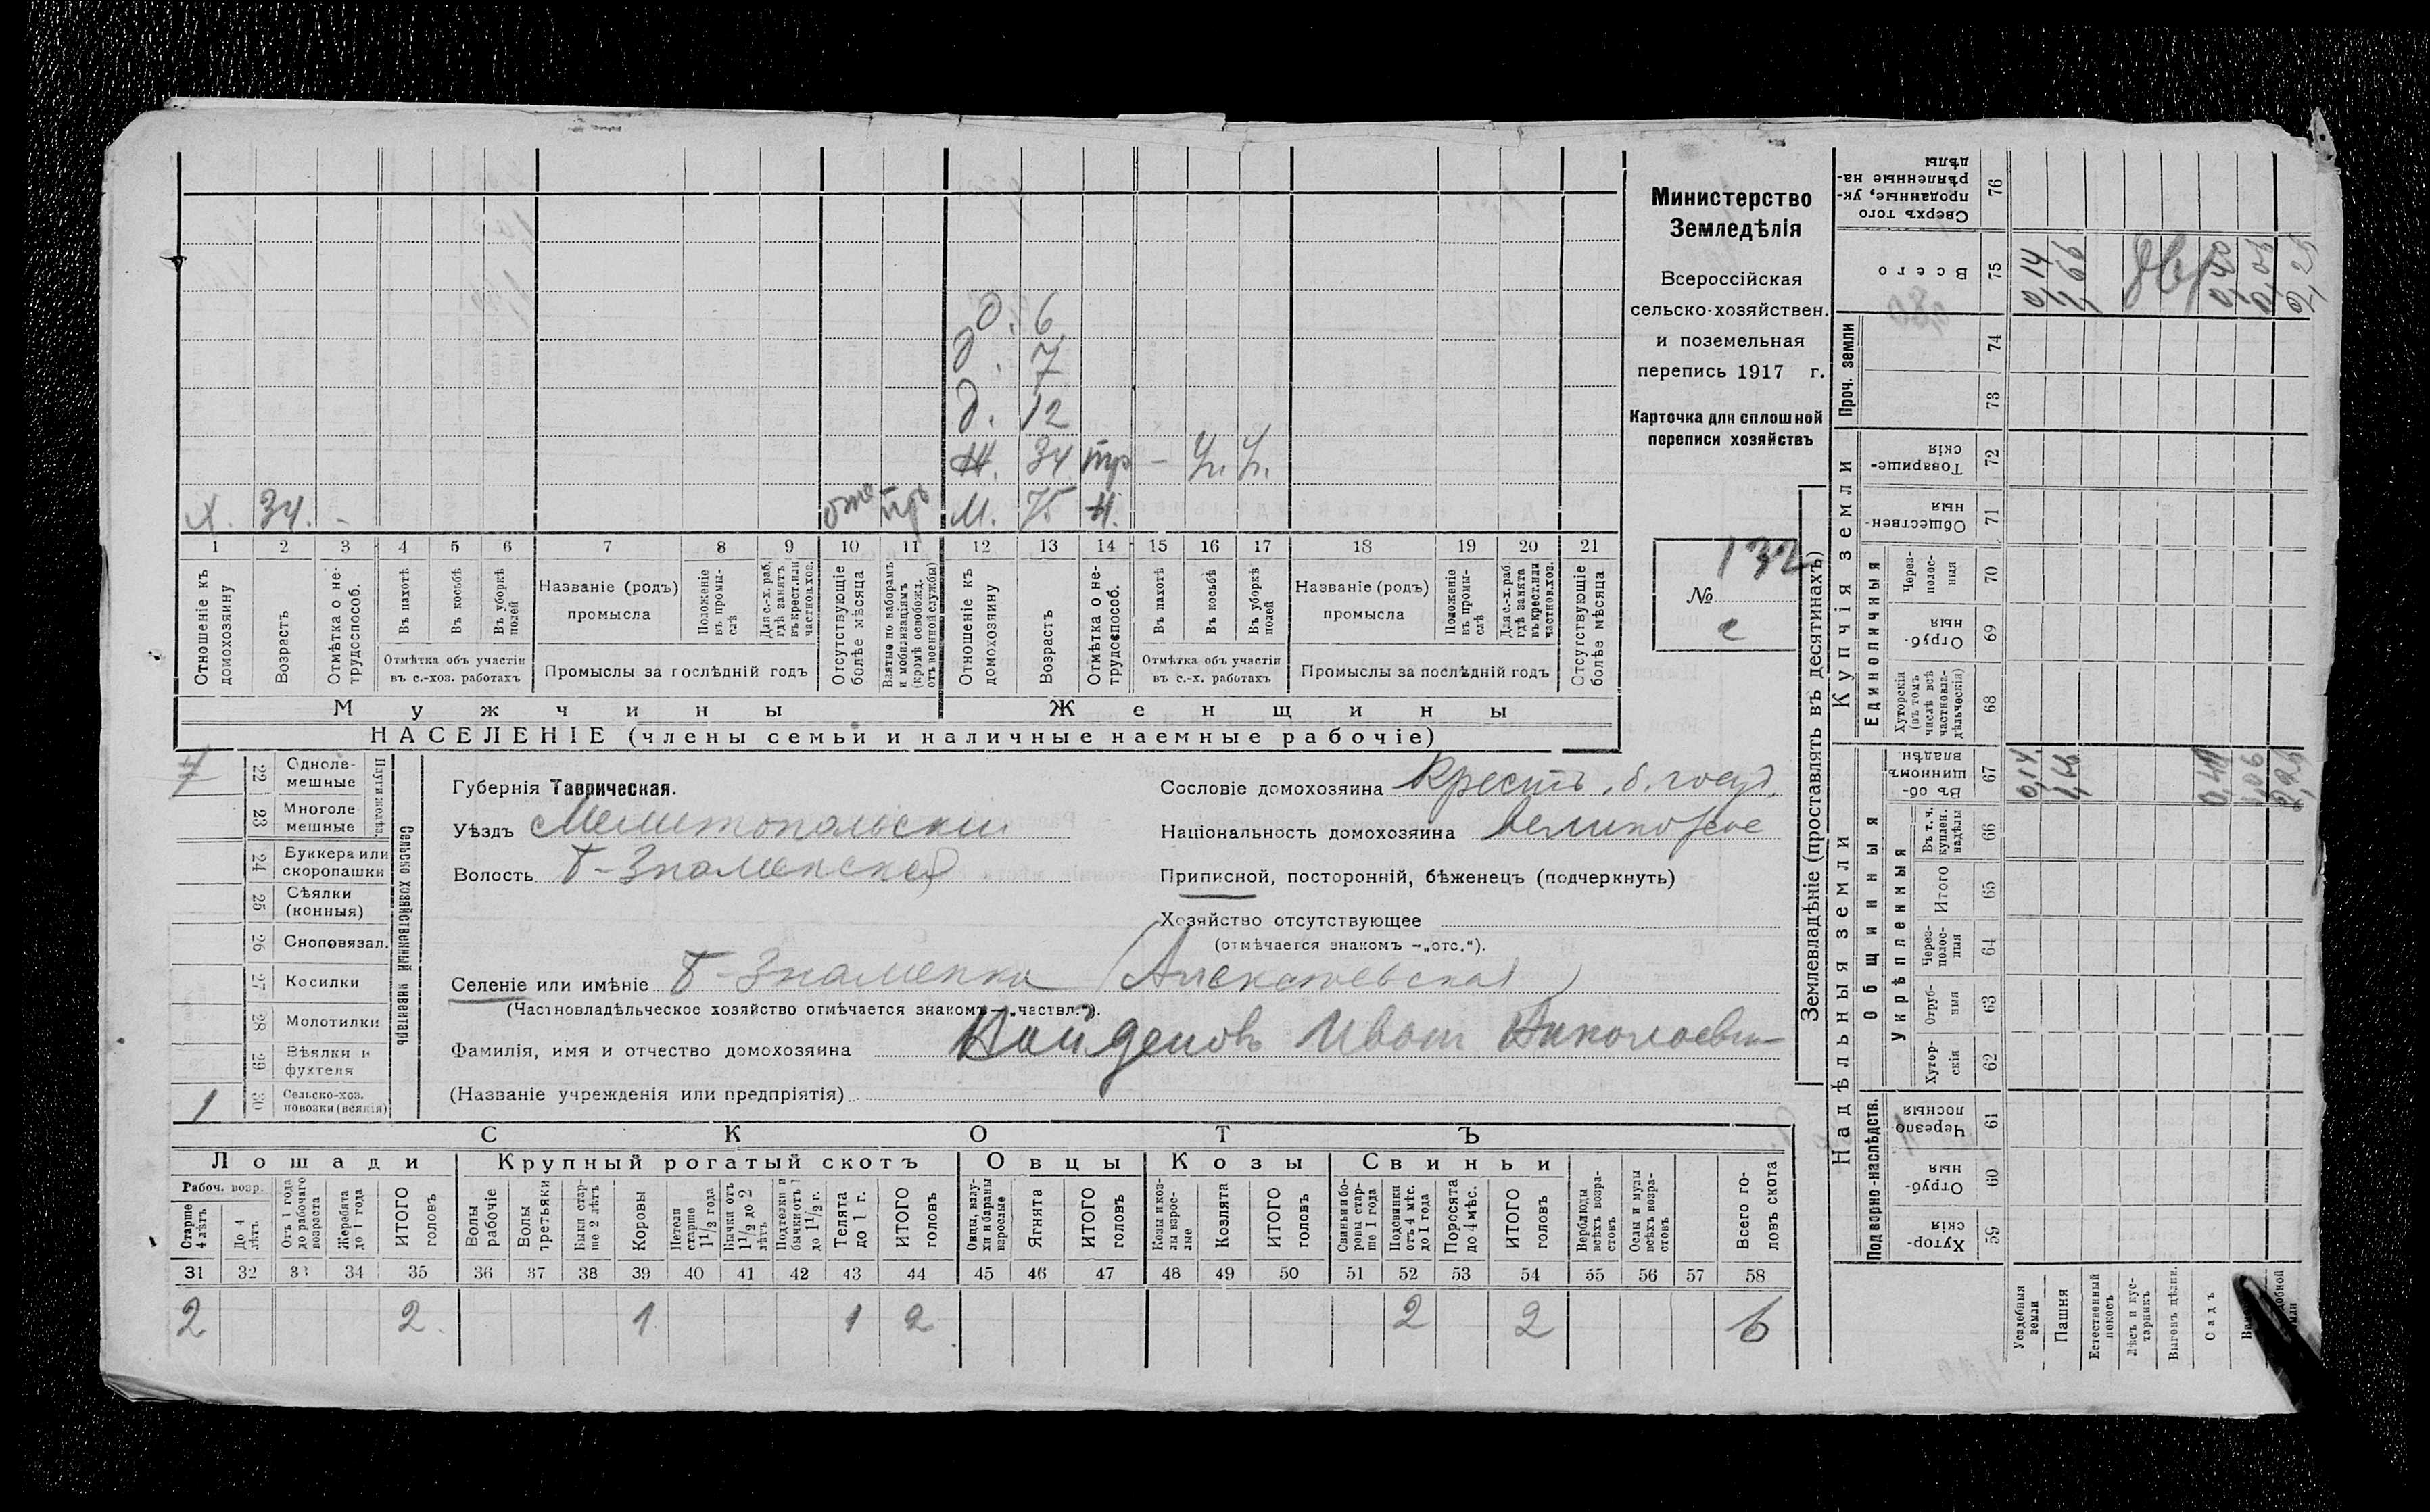 Министерство
Земледѣлія
Всероссійская
сельско-хозяйствен.
и поземельная
перепись 1917 г.
Карточка для сплошной
переписи хозяйствъ
132
№
д. 6
д. 7
д. 12
Ж. 34 тр - ч. ч.
Х. 34. - отс М. 75 Н.
1 2 3 4 5 6 7 8 9 10 11 12 13 14 15 16 17 18 19 20 21
Отношеніе къ домохозяину
Возрастъ
Отмѣтка о нетрудоспособ.
Въ пахотѣ
Въ косьбѣ
Въ уборкѣ полей
Отмѣтка объ участіи
въ с.-хоз. работахъ
Названіе (родъ)
промысла
Положеніе въ промы-слѣ
Для с.-х. раб. гдѣ занятъ въ крест. или частнов. хоз.
Промыслы за послѣдній годъ
Отсутствующіе болѣе мѣсяца
Взятые по наборамъ и мобилизаціямъ (кромѣ освобожд. отъ военной службы)
Отношеніе къ домохозяину
Возрастъ
Отмѣтка о не-трудоспособ.
Въ пахотѣ
Въ косьбѣ
Въ уборкѣ полей
Отмѣтка объ участіи
въ с.-х. работахъ
Названіе (родъ)
промысла
Положеніе въ промы-слѣ
Для с.-х. раб гдѣ занята въ крест. или частнов. хоз.
Промыслы за послѣдній годъ
Отсутствующіе болѣе мѣсяца
Мужчины Женщины
НАСЕЛЕНІЕ (члены семьи и наличные наемные рабочіе)
22 Одноле-мешные
23 Многоле мешные
24 Буккера или скоропашки
25 Сѣялки (конныя)
26 Сноповязал.
27 Косилки
28 Молотилки
29 Вѣялки и фухтеля
1 30 Сельско-хоз. повозки (всякія)
Сельско хозяйственный инвентарь
Губернія Таврическая.
Уѣздъ Мелитопольскій
Волость Б-Знаменская
Сословіе домохозяина Крестъ. б. госуд.
Національность домохозяина великорос
Приписной, посторонній, бѣженецъ (подчеркнуть)
Хозяйство отсутствующее
(отмѣчается знакомъ –„отс.“).
Селеніе или имѣніе Б-Знаменка (Алексѣевская)
(Частновладѣльческое хозяйство отмѣчается знакомъ—„частвл.“).
Фамилія, имя и отчество домохозяина Найденовъ Иванъ Николаевич
(Названіе учрежденія или предпріятія)
СКОТЪ
Лошади Крупный рогатый скотъ Овцы Козы Свиньи
Рабоч. возр.
Старше 4 лѣтъ
До 4 лѣтъ
Отъ 1 года до рабочаго возраста
Жеребята до 1 года
ИТОГО головъ
Волы рабочіе
Волы третьяки
Быки стар-ше 2 лѣтъ
Коровы
Нетели старше 1 1/2 года
Бычки отъ 1 1/2 до 2 лѣтъ
Подтелки и бычки отъ 1 до 1 1/2 г.
Телята до 1 г.
ИТОГО головъ
Овцы, валу-хи и бараны взрослые
Ягнята
ИТОГО головъ
Козы и коз-лы взрос-лые
Козлята
ИТОГО головъ
Свиньи и бо-ровы стар-ше 1 года
Подсвинки отъ 4 мѣс. до 1 года
Поросята до 4 мѣс.
ИТОГО головъ
Верблюды всѣхъ возра-стовъ
Ослы и мулы всѣхъ возра-стовъ
Всего го-ловъ скота
31 32 33 34 35 36 37 38 39 40 41 42 43 44 45 46 47 48 49 50 51 52 53 54 55 56 57 58
2 2 1 1 2 2 2 6
Землевладѣніе (проставлять въ десятинахъ)
Надѣльныя земли Купчія земли Проч. земли
Подворно-наслѣдств. Общинныя Единоличныя
Укрѣпленныя
Хутор-скія 59
Отруб-ныя 60
Черезпо лосныя 61
Хутор-скія 62
Отруб-ныя 63
Через-полос-ныя 64
Итого 65
Въ т. ч. куплен. надѣлы 66
Въ об-щинномъ владѣн. 67
Хуторскія (въ томъ числѣ всѣ частновла-дѣльческія) 68
Отруб-ныя 69
Через-полос-ныя 70
Обществен-ныя 71
Товарище-скія 72
73
74
Всего 75
Сверхъ того проданные, ук-рѣпленные на-дѣлы 76
Усадебныя земли 0,14 0,14
Пашня 1,66 1,66
Естественный покосъ
Лѣсъ и кус-тарникъ
Выгонъ цѣлин.
Садъ 0,40 0,40